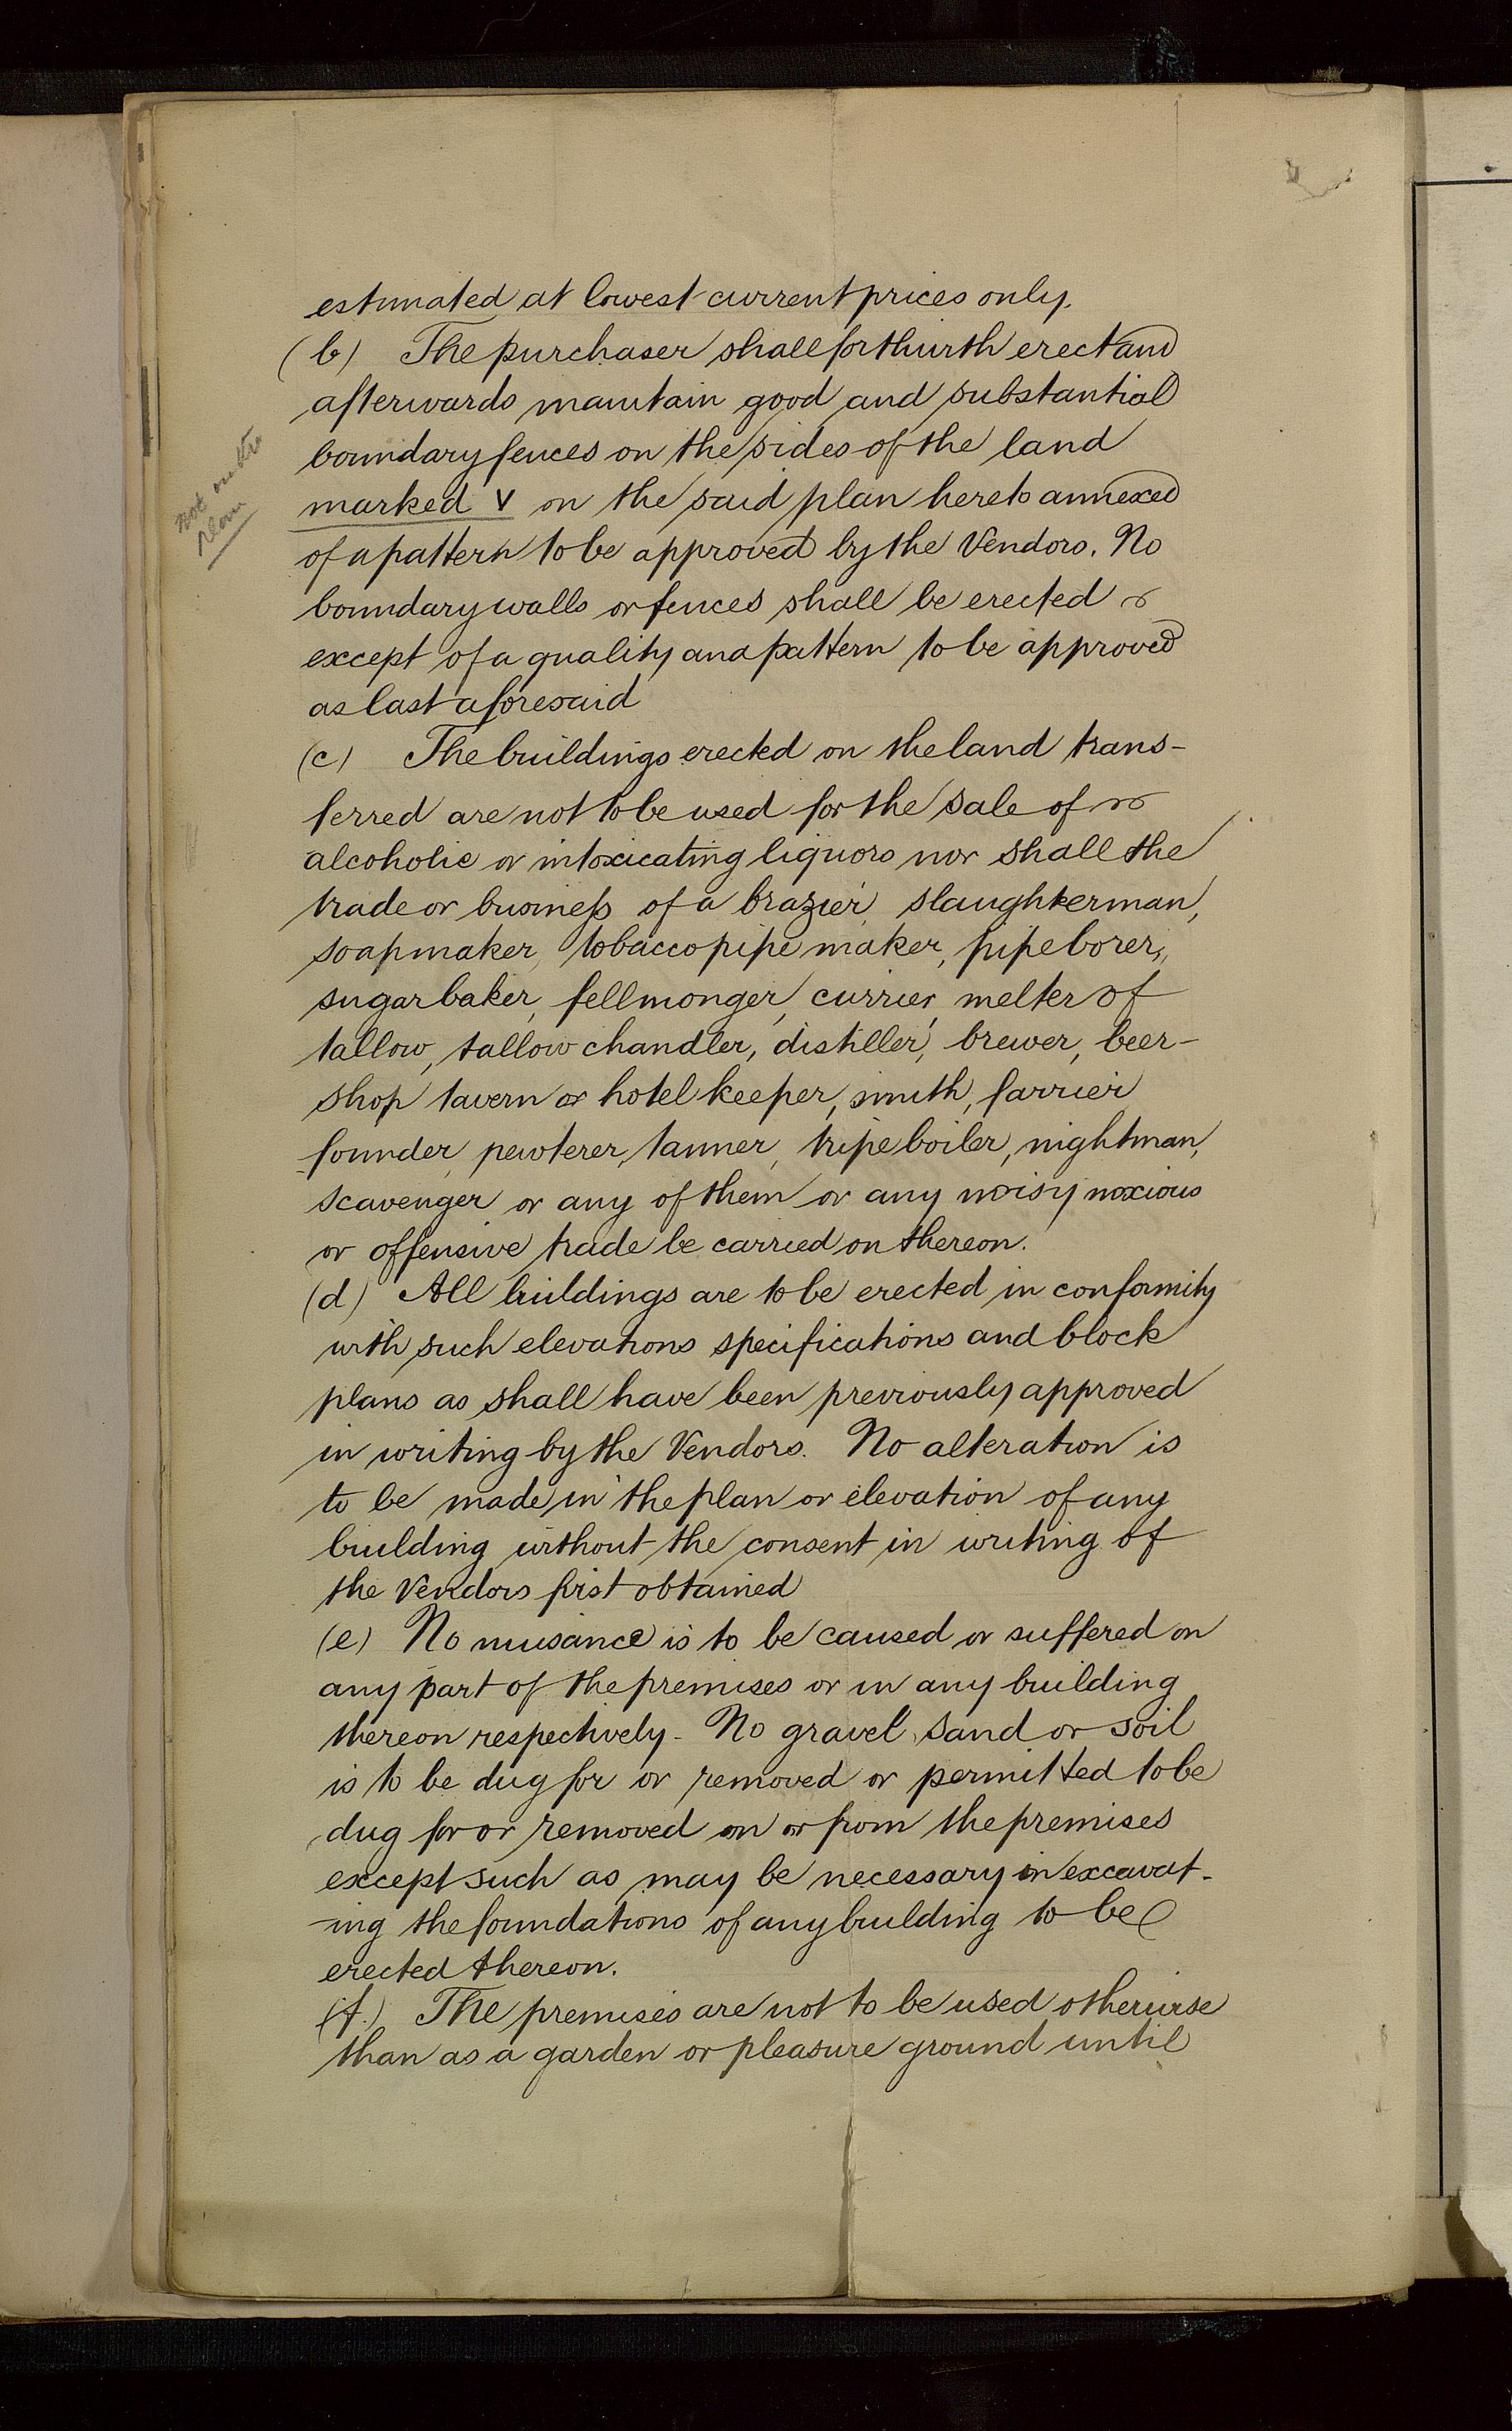 estimated at lowest current prices only.
(b) The purchaser shall forthwith erect and
afterwards maintain good and substantial
boundary fences on the sides of the land
marked V on the said plan hereto annexed
not on the
plan
of a pattern to be approved by the Vendors. No
boundary walls or fences shall be erected
except of a quality and pattern to be approved
as last aforesaid
(c) The buildings erected on the land trans-
ferred are not to be used for the sale of
alcoholic or intoxicating liquors nor shall the
trade or business of a brazier, slaughterman,
soapmaker, tobacco pipe maker, pipe borer,
sugar baker, fellmonger, currier, melter of
tallow, tallow chandler, distiller, brewer, beer-
shop tavern or hotel keeper, smith, farrier
founder, pewterer, tanner, tripe boiler, nightman,
scavenger or any of them or any noisy noxious
or offensive trade be carried on thereon.
(d) All buildings are to be erected in conformity
with such elevations specifications and block
plans as shall have been previously approved
in writing by the Vendors. No alteration is
to be made in the plan or elevation of any
building without the consent in writing of
the Vendors first obtained
(e) No nuisance is to be caused or suffered on
any part of the premises or in any building
thereon respectively. No gravel, sand or soil
is to be dug for or removed or permitted to be
dug for or removed on or from the premises
except such as may be necessary in excavat-
ing the foundations of any building to be
erected thereon.
(f.) The premises are not to be used otherwise
than as a garden or pleasure ground until